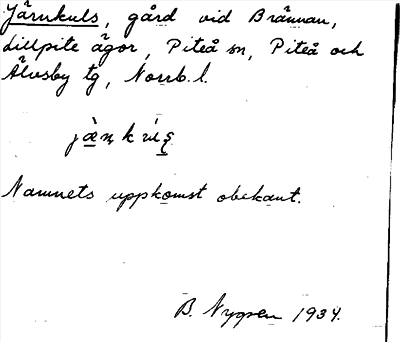 Järnkuls, gård vid Brännan,
Lillpite ägor, Piteå sn, Piteå och
Älvsby tg, Norrb. l.
Namnets uppkomst obekant.
B. Nygren 1934.